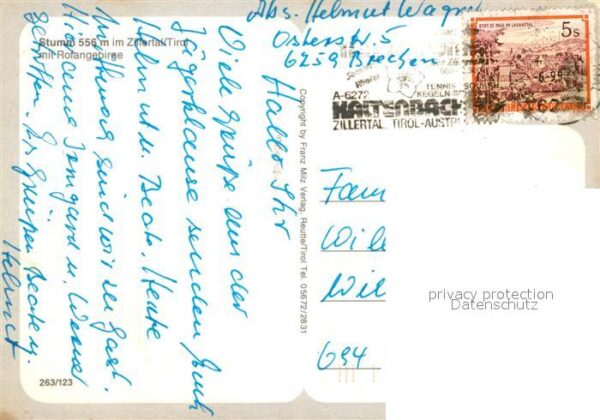 Abs. Helmut Wagner
Osterstr. 5
6259 Brechen
Stumm 556 m im Zillertal/Tirol
mit Rofangebirge
Hallo Ihr
Viele Grüße aus der
Jägerklause senden Euch
Helmut u. Beate. Heute
Mittwoch sind wir zu Gast.
Irmgard u. Werner
Grüßen Beate u.
Helmut
263/123
Copyright by Franz Milz Verlag, Reutte/Tirol Tel. 05672/2831
STIFT ST. PAUL IM LAVANTTAL
5s
TENNIS
KEGELN
A-6272
KALTENBACH
ZILLERTAL, TIROL-AUSTRI
Fam
Wil
Wil
694
privacy protection
Datenschutz